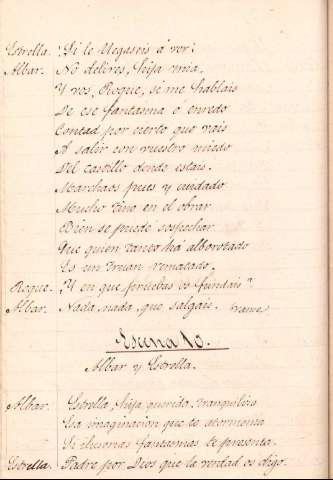 Estrella. ¡Si le llegaseis á ver!
Albar. No delires, hija mia,
Y vos, Roque, si me hablais
De ese fantasma ó enredo
Contad por cierto que vais
A salir con vuestro miedo
Del castillo donde estais.
Marchaos pues y cuidado
Mucho tino en el obrar
Bien se puede sospechar
Que quien tanto há alborotado
Es un truan rematado.
Roque. ¿Y en que pruebas os fundais?
Albar. Nada, nada, que salgais. (vanse
Escena 10.
Albar y Estrella.
Albar. Estrella, hija querida, tranquiliza
Esa imaginacion que te atormenta
Si ilusorias fantasmas te presenta.
Estrella. Padre por Dios que la verdad os digo.